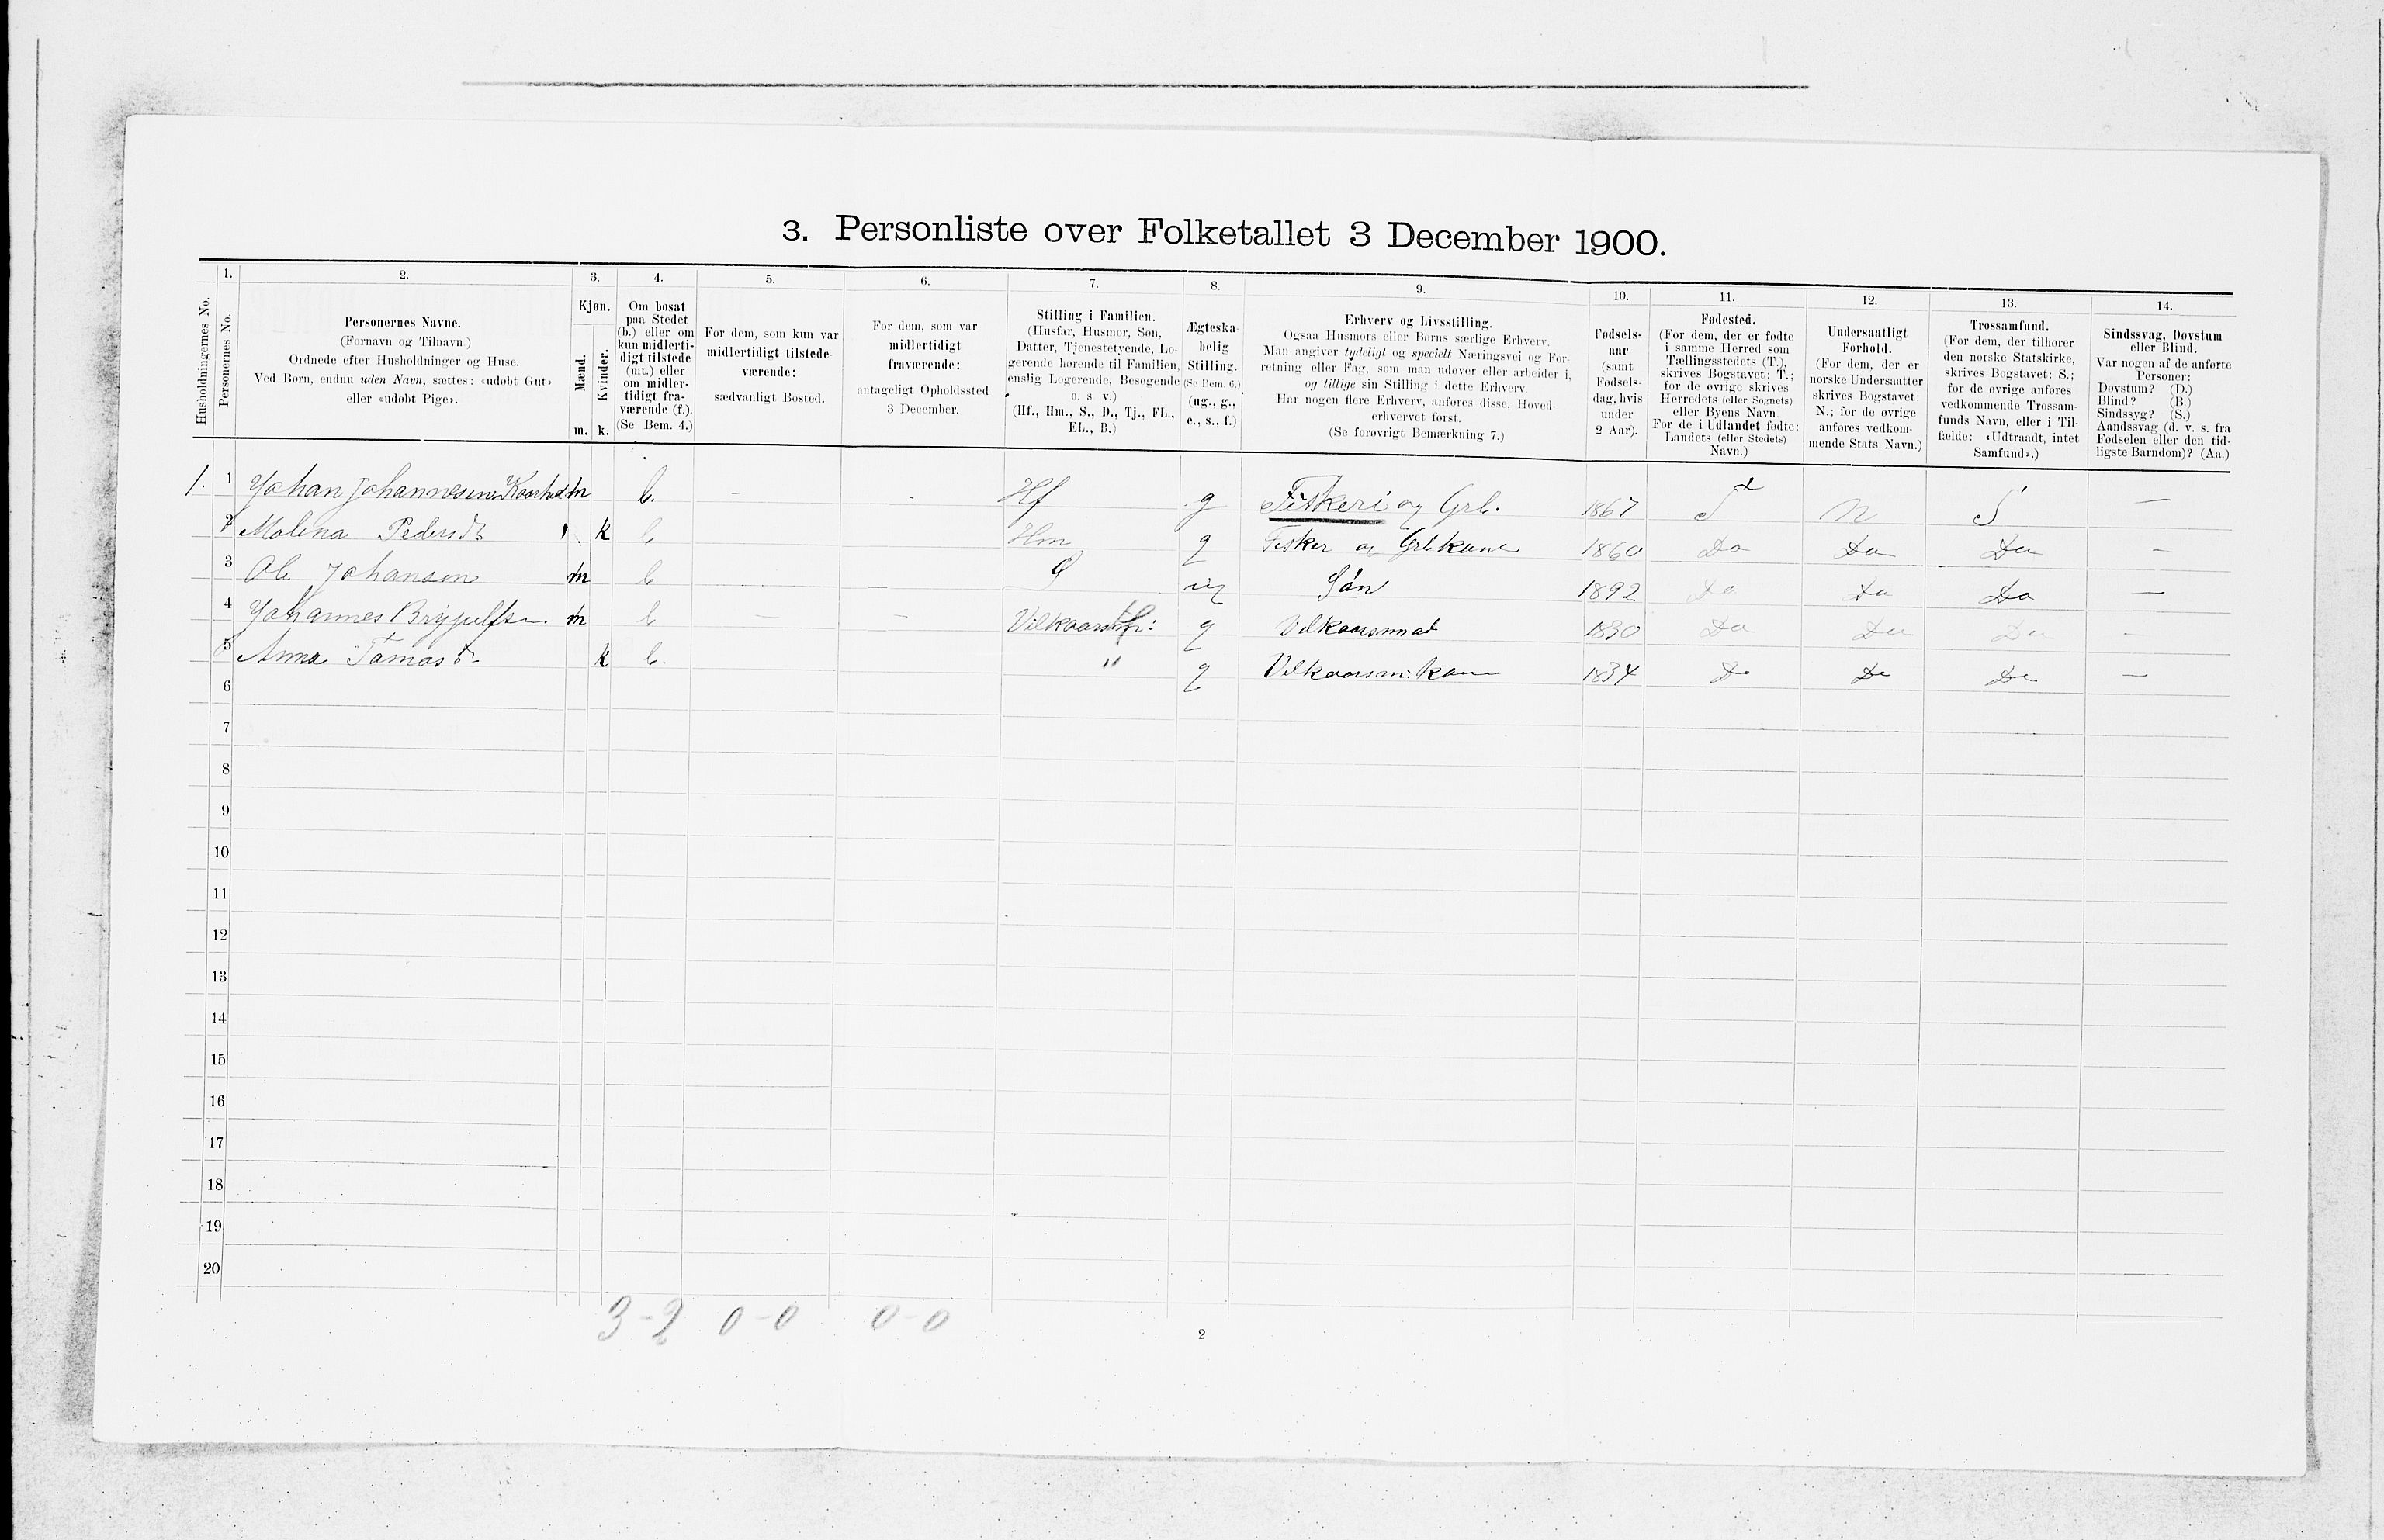 3. Personliste over Folketallet 3 December 1900.
Husholdningernes No.
1.
Personernes No.
2.
Personernes Navne.
(Fornavn og Tilnavn)
Ordnede efter Husholdninger og Huse.
Ved Børn, endnu uden Navn, sættes: «udøbt Gut»
eller «udøbt Pige».
3.
Kjøn.
Mænd.
Kvinder.
m. k.
4.
Om bosat
paa Stedet
(b.) eller om
kun midlerti-
digt tilstede
(mt.) eller
om midler-
tidigt fra-
værende (f.).
(Se Bem. 4.)
5.
For dem, som kun var
midlertidigt tilstede-
værende:
sædvanligt Bosted.
6.
For dem, som var
midlertidigt
fraværende:
antageligt Opholdssted
3 December.
7.
Stilling i Familien.
(Husfar, Husmor, Søn,
Datter, Tjenestetyende, Lo-
gerende hørende til Familien,
enslig Logerende, Besøgende
o. s v.)
(Hf., Hm., S., D., Tj., FL.,
EL., B.)
8.
Ægteska-
belig
Stilling.
(Se Bem. 6.)
(ug., g.,
e., s., f.)
9.
Erhverv og Livsstilling.
Ogsaa Husmors eller Børns særlige Erhverv.
Man angiver tydeligt og specielt Næringsvei og For-
retning eller Fag, som man udøver eller arbeider i,
og tillige sin Stilling i dette Erhverv.
Har nogen flere Erhverv, anføres disse, Hoved-
erhvervet først.
(Se forøvrigt Bemærkning 7.)
10.
Fødsels-
aar
(samt
Fødsels-
dag, hvis
under
2 Aar).
11.
Fødested.
(For dem, der er fødte
i samme Herred som
Tællingsstedets (T.),
skrives Bogstavet: T.;
for de øvrige skrives
Herredets (eller Sognets)
eller Byens Navn.
For de i Udlandet fødte:
Landets (eller Stedets)
Navn.)
12.
Undersaatligt
Forhold.
(For dem, der er
norske Undersaatter
skrives Bogstavet:
N.; for de øvrige
anføres vedkom-
mende Stats Navn.)
13.
Trossamfund.
(For dem, der tilhører
den norske Statskirke,
skrives Bogstavet: S.;
for de øvrige anføres
vedkommende Trossam-
funds Navn, eller i Til-
fælde: «Udtraadt, intet
Samfund».)
14.
Sindssvag, Døvstum
eller Blind.
Var nogen af de anførte
Personer:
Døvstum? (D.)
Blind? (B.)
Sindssyg? (S.)
Aandssvag (d. v. s. fra
Fødselen eller den tid-
ligste Barndom)? (Aa.)
1. 1 Johan Johannesen m b. - - Hf g Fiskeri og Grb. 1867 T N S —
2 Malena Pedersdt k b Hm g Fisker og Grb kone 1860 Do Do Do —
3 Ole Johansen m b — — S ug Søn 1892 Do Do Do —
4 Johannes Brynjulfsen m b — — g Vilkaarsmad 1830 Do Do Do -
5 Anna Tomasdt k b. " g Vilkaarsm: kone 1834 Do Do Do —
6
7
8
9
10
11
12
13
14
15
16
17
18
19
20
3-2 0-0 0-0
2